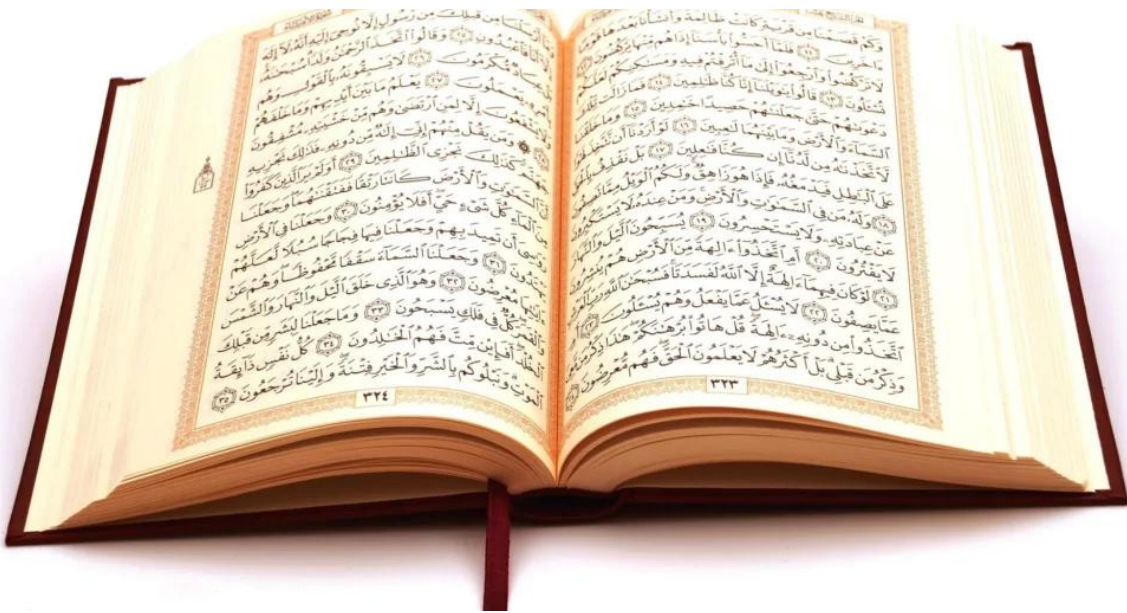 وَكَمْ قَصَمْنَا مِن قَرْيَةٍ كَانَتْ ظَالِمَةً وَأَنشَأْنَا بَعْدَهَا
ءَاخَرِينَ ١١ فَلَمَّآ أَحَسُّوا۟ بَأْسَنَآ إِذَا هُم مِّنْهَا يَرْكُضُونَ
لَا تَرْكُضُوا۟ وَٱرْجِعُوٓا۟ إِلَىٰ مَآ أُتْرِفْتُمْ فِيهِ وَمَسَٰكِنِكُمْ لَعَلَّكُمْ
تُسْـَٔلُونَ ١٣ قَالُوا۟ يَٰوَيْلَنَآ إِنَّا كُنَّا ظَٰلِمِينَ ١٤ فَمَا زَالَت تِّلْكَ
دَعْوَىٰهُمْ حَتَّىٰ جَعَلْنَٰهُمْ حَصِيدًا خَٰمِدِينَ ١٥ وَمَا خَلَقْنَا
ٱلسَّمَآءَ وَٱلْأَرْضَ وَمَا بَيْنَهُمَا لَٰعِبِينَ ١٦ لَوْ أَرَدْنَآ أَن نَّتَّخِذَ لَهْوًا
لَّٱتَّخَذْنَٰهُ مِن لَّدُنَّآ إِن كُنَّا فَٰعِلِينَ ١٧ بَلْ نَقْذِفُ بِٱلْحَقِّ
عَلَى ٱلْبَٰطِلِ فَيَدْمَغُهُۥ فَإِذَا هُوَ زَاهِقٌ وَلَكُمُ ٱلْوَيْلُ مِمَّا تَصِفُونَ
١٨ وَلَهُۥ مَن فِى ٱلسَّمَٰوَٰتِ وَٱلْأَرْضِ وَمَنْ عِندَهُۥ لَا يَسْتَكْبِرُونَ
عَنْ عِبَادَتِهِۦ وَلَا يَسْتَحْسِرُونَ ١٩ يُسَبِّحُونَ ٱلَّيْلَ وَٱلنَّهَارَ
لَا يَفْتُرُونَ ٢٠ أَمِ ٱتَّخَذُوٓا۟ ءَالِهَةً مِّنَ ٱلْأَرْضِ هُمْ يُنشِرُونَ
٢١ لَوْ كَانَ فِيهِمَآ ءَالِهَةٌ إِلَّا ٱللَّهُ لَفَسَدَتَا فَسُبْحَٰنَ ٱللَّهِ رَبِّ ٱلْعَرْشِ
عَمَّا يَصِفُونَ ٢٢ لَا يُسْـَٔلُ عَمَّا يَفْعَلُ وَهُمْ يُسْـَٔلُونَ ٢٣ أَمِ
ٱتَّخَذُوا۟ مِن دُونِهِۦٓ ءَالِهَةً قُلْ هَاتُوا۟ بُرْهَٰنَكُمْ هَٰذَا ذِكْرُ مَن مَّعِىَ
وَذِكْرُ مَن قَبْلِى بَلْ أَكْثَرُهُمْ لَا يَعْلَمُونَ ٱلْحَقَّ فَهُم مُّعْرِضُونَ ٢٤
٣٢٣
مِن قَبْلِكَ مِن رَّسُولٍ إِلَّا نُوحِىٓ إِلَيْهِ أَنَّهُۥ لَآ إِلَٰهَ
إِلَّآ أَنَا۠ فَٱعْبُدُونِ ٢٥ وَقَالُوا۟ ٱتَّخَذَ ٱلرَّحْمَٰنُ وَلَدًا سُبْحَٰنَهُۥ
بَلْ عِبَادٌ مُّكْرَمُونَ ٢٦ لَا يَسْبِقُونَهُۥ بِٱلْقَوْلِ وَهُم
بِأَمْرِهِۦ يَعْمَلُونَ ٢٧ يَعْلَمُ مَا بَيْنَ أَيْدِيهِمْ وَمَا خَلْفَهُمْ
وَلَا يَشْفَعُونَ إِلَّا لِمَنِ ٱرْتَضَىٰ وَهُم مِّنْ خَشْيَتِهِۦ مُشْفِقُونَ
٢٨ ۞ وَمَن يَقُلْ مِنْهُمْ إِنِّىٓ إِلَٰهٌ مِّن دُونِهِۦ فَذَٰلِكَ نَجْزِيهِ
جَهَنَّمَ كَذَٰلِكَ نَجْزِى ٱلظَّٰلِمِينَ ٢٩ أَوَلَمْ يَرَ ٱلَّذِينَ كَفَرُوٓا۟
أَنَّ ٱلسَّمَٰوَٰتِ وَٱلْأَرْضَ كَانَتَا رَتْقًا فَفَتَقْنَٰهُمَا وَجَعَلْنَا
مِنَ ٱلْمَآءِ كُلَّ شَىْءٍ حَىٍّ أَفَلَا يُؤْمِنُونَ ٣٠ وَجَعَلْنَا فِى ٱلْأَرْضِ
رَوَٰسِىَ أَن تَمِيدَ بِهِمْ وَجَعَلْنَا فِيهَا فِجَاجًا سُبُلًا لَّعَلَّهُمْ
يَهْتَدُونَ ٣١ وَجَعَلْنَا ٱلسَّمَآءَ سَقْفًا مَّحْفُوظًا وَهُمْ عَنْ
ءَايَٰتِهَا مُعْرِضُونَ ٣٢ وَهُوَ ٱلَّذِى خَلَقَ ٱلَّيْلَ وَٱلنَّهَارَ وَٱلشَّمْسَ
وَٱلْقَمَرَ كُلٌّ فِى فَلَكٍ يَسْبَحُونَ ٣٣ وَمَا جَعَلْنَا لِبَشَرٍ مِّن قَبْلِكَ
ٱلْخُلْدَ أَفَإِي۟ن مِّتَّ فَهُمُ ٱلْخَٰلِدُونَ ٣٤ كُلُّ نَفْسٍ ذَآئِقَةُ
ٱلْمَوْتِ وَنَبْلُوكُم بِٱلشَّرِّ وَٱلْخَيْرِ فِتْنَةً وَإِلَيْنَا تُرْجَعُونَ ٣٥
٣٢٤